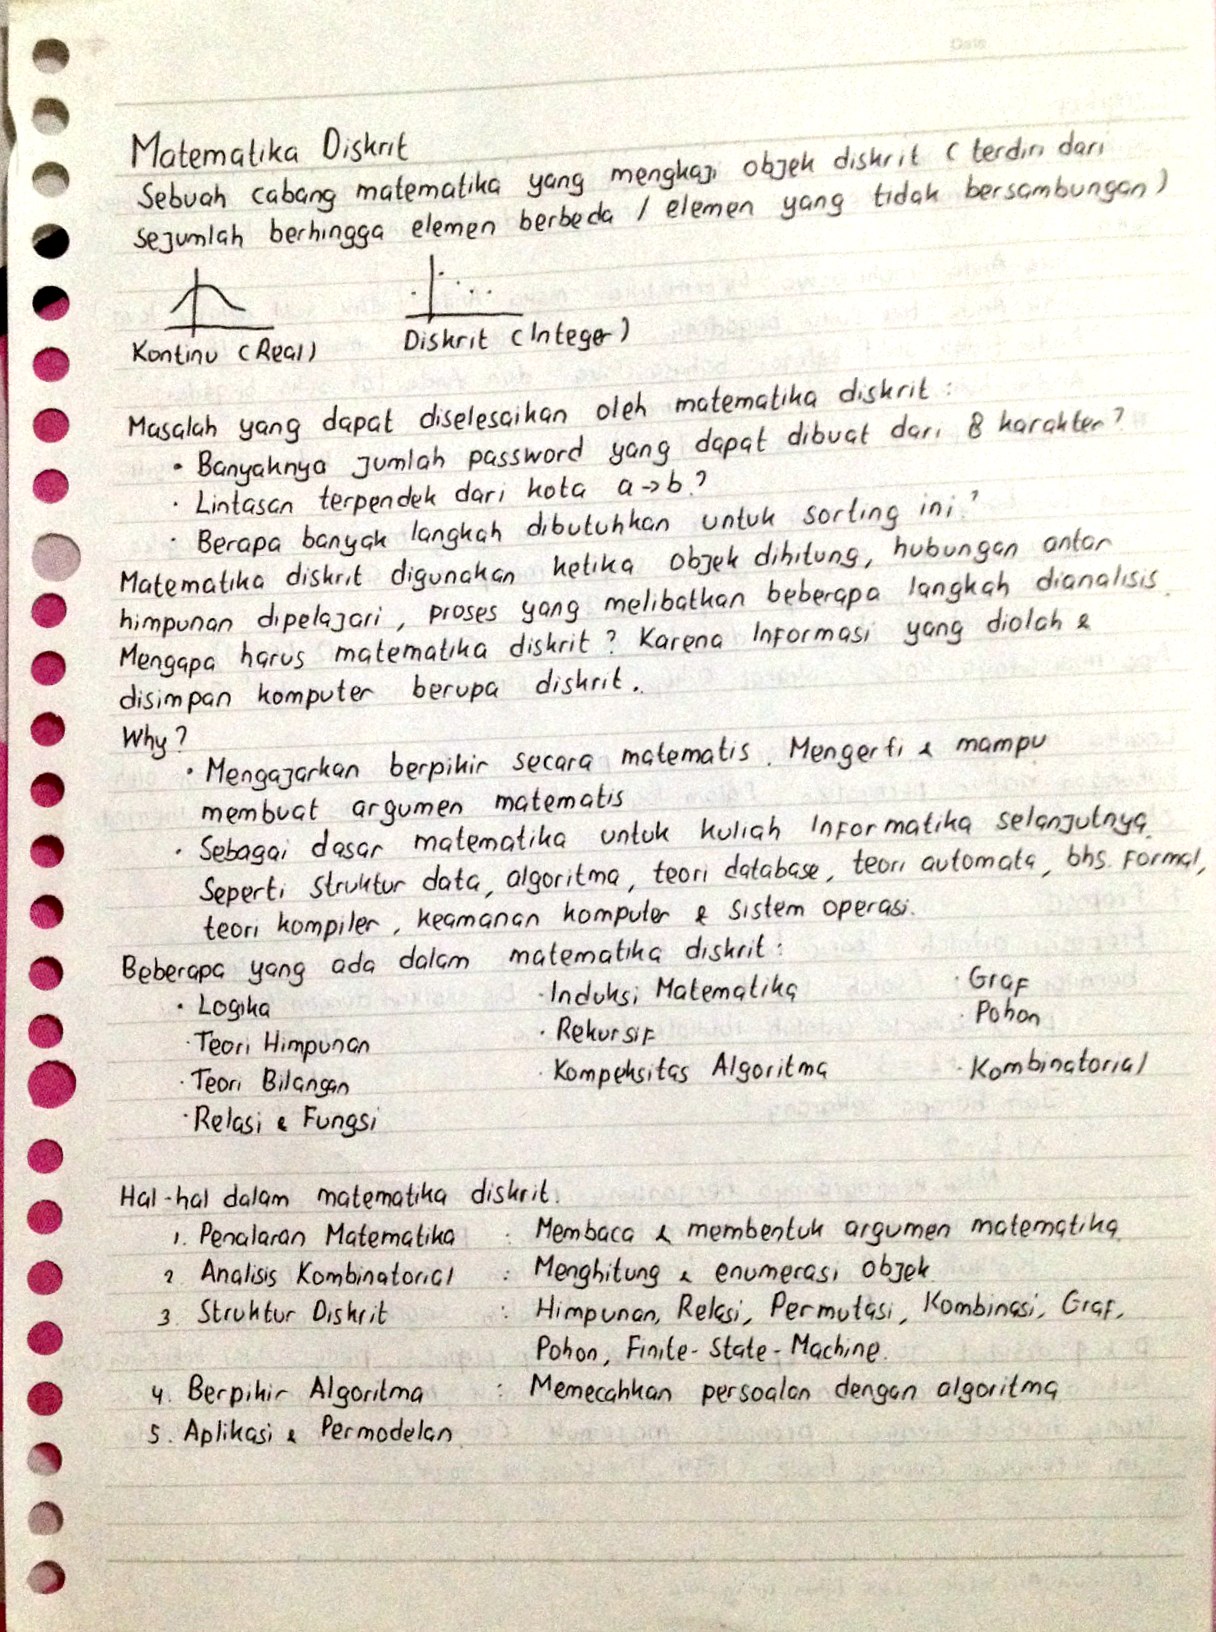 Date
Matematika Diskrit
Sebuah cabang matematika yang mengkaji objek diskrit ( terdiri dari
sejumlah berhingga elemen berbeda / elemen yang tidak bersambungan )
Kontinu (Real)
Diskrit (Integer)
Masalah yang dapat diselesaikan oleh matematika diskrit :
• Banyaknya jumlah password yang dapat dibuat dari 8 karakter ?
· Lintasan terpendek dari kota a → b ?
· Berapa banyak langkah dibutuhkan untuk sorting ini ?
Matematika diskrit digunakan ketika objek dihitung, hubungan antar
himpunan dipelajari, proses yang melibatkan beberapa langkah dianalisis.
Mengapa harus matematika diskrit ? Karena Informasi yang diolah &
disimpan komputer berupa diskrit..
Why ?
• Mengajarkan berpikir secara matematis. Mengerti & mampu
membuat argumen matematis
• Sebagai dasar matematika untuk kuliah Informatika selanjutnya.
Seperti Struktur data, algoritma, teori database, teori automata, bhs. Formal,
teori kompiler, keamanan komputer & sistem operasi.
Beberapa yang ada dalam matematika diskrit :
· Logika · Induksi Matematika · Graf
· Teori Himpunan · Rekursif · Pohon
· Teori Bilangan · Kompeksitas Algoritma · Kombinatorial
· Relasi & Fungsi
Hal-hal dalam matematika diskrit.
1. Penalaran Matematika : Membaca & membentuk argumen matematika.
2 Analisis Kombinatorial : Menghitung & enumerasi objek
3. Struktur Diskrit : Himpunan, Relasi, Permutasi, Kombinasi, Graf,
Pohon, Finite-State-Machine.
4. Berpikir Algoritma : Memecahkan persoalan dengan algoritma
5. Aplikasi & Permodelan.